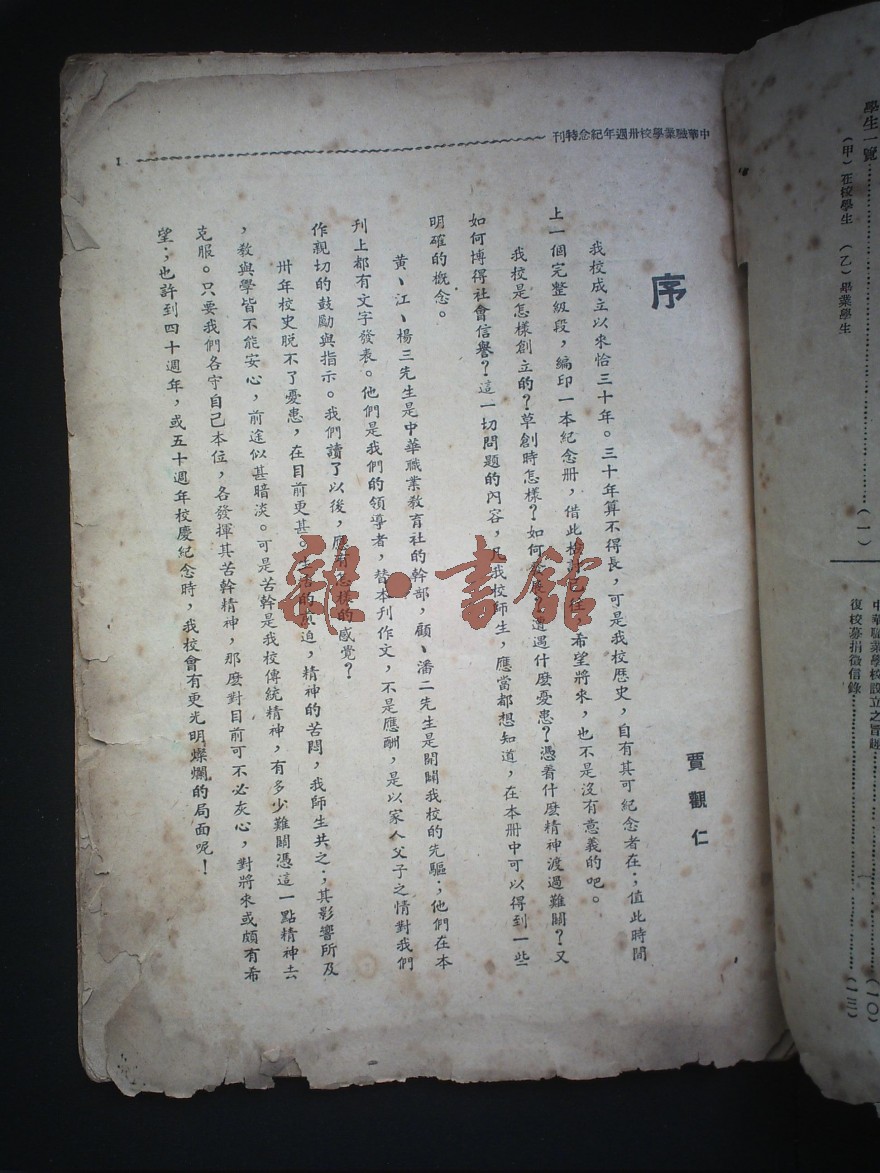 中華職業學校卅週年紀念特刊
1
序
賈觀仁
我校成立以來恰三十年。三十年算不得長，可是我校歷史，自有其可紀念者在；值此時間
上一個完整級段，編印一本紀念冊，借此檢討已往，希望將來，也不是沒有意義的吧。
我校是怎樣創立的？草創時怎樣？如何發展？遭遇什麼憂患？憑着什麼精神渡過難關？又
如何博得社會信譽？這一切問題的內容，凡我校師生，應當都想知道，在本冊中可以得到一些
明確的概念。
黃、江、楊三先生是中華職業教育社的幹部，顧、潘二先生是開闢我校的先驅；他們在本
刊上都有文字發表。他們是我們的領導者，替本刊作文，不是應酬，是以家人父子之情對我們
作親切的鼓勵與指示。我們讀了以後，應有怎樣的感覺？
卅年校史脫不了憂患，在目前更甚。生活的壓迫，精神的苦悶，我師生共之；其影響所及
，教與學皆不能安心，前途似甚暗淡。可是苦幹是我校傳統精神，有多少難關憑這一點精神去
克服。只要我們各守自己本位，各發揮其苦幹精神，那麼對目前可不必灰心，對將來或頗有希
望；也許到四十週年，或五十週年校慶紀念時，我校會有更光明燦爛的局面呢！
學生一覽……（一）
（甲）在校學生　（乙）畢業學生
中華職業學校設立之旨趣……（一〇）
復校募捐徵信錄……（一三）
龍·書館